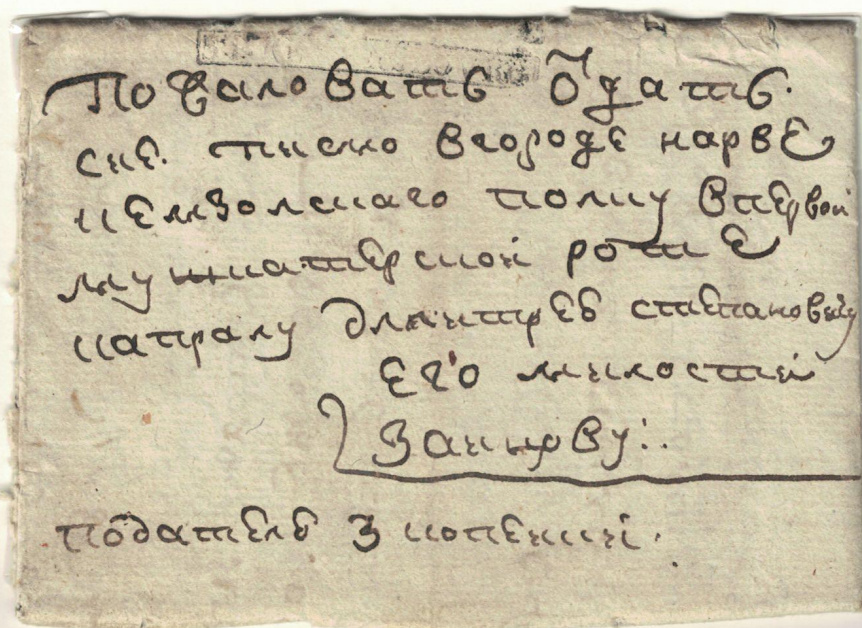 пожаловать ѿдать
сие писмо вгороде нарве
кемзолскаго полку впервой
мушкатерской роте
капралу дмитреѣ степановичу
его милости
Закирову:.
подателе 3 копейки.